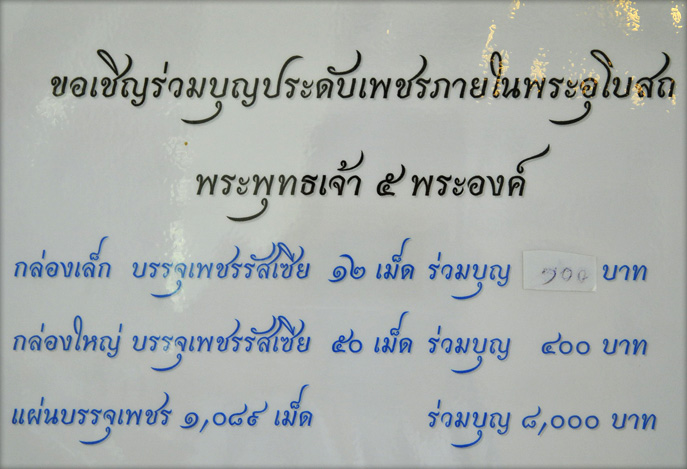 ขอเชิญร่วมบุญประดับเพชรภายในพระอุโบสถ
พระพุทธเจ้า ๕ พระองค์
กล่องเล็ก บรรจุเพชรรัสเซีย ๑๒ เม็ด ร่วมบุญ ๑๐๐ บาท
กล่องใหญ่ บรรจุเพชรรัสเซีย ๕๐ เม็ด ร่วมบุญ ๔๐๐ บาท
แผ่นบรรจุเพชร ๑,๐๘๙ เม็ด ร่วมบุญ ๘,๐๐๐ บาท